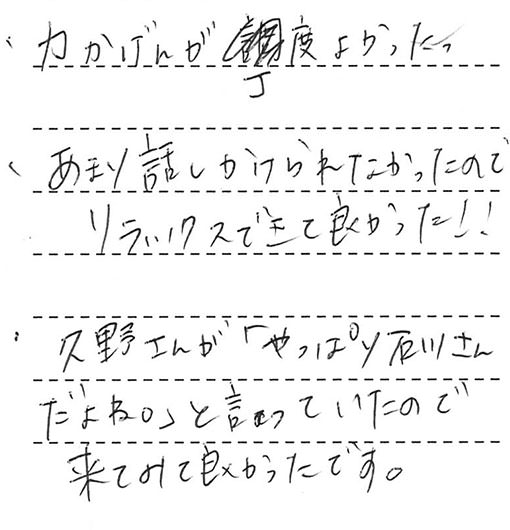 ・力かげんが丁度よかったっ
・あまり話しかけられなかったので
リラックスできて良かった!!
・久野さんが「やっぱり石川さん
だよね。」と言っていたので
来てみて良かったです。